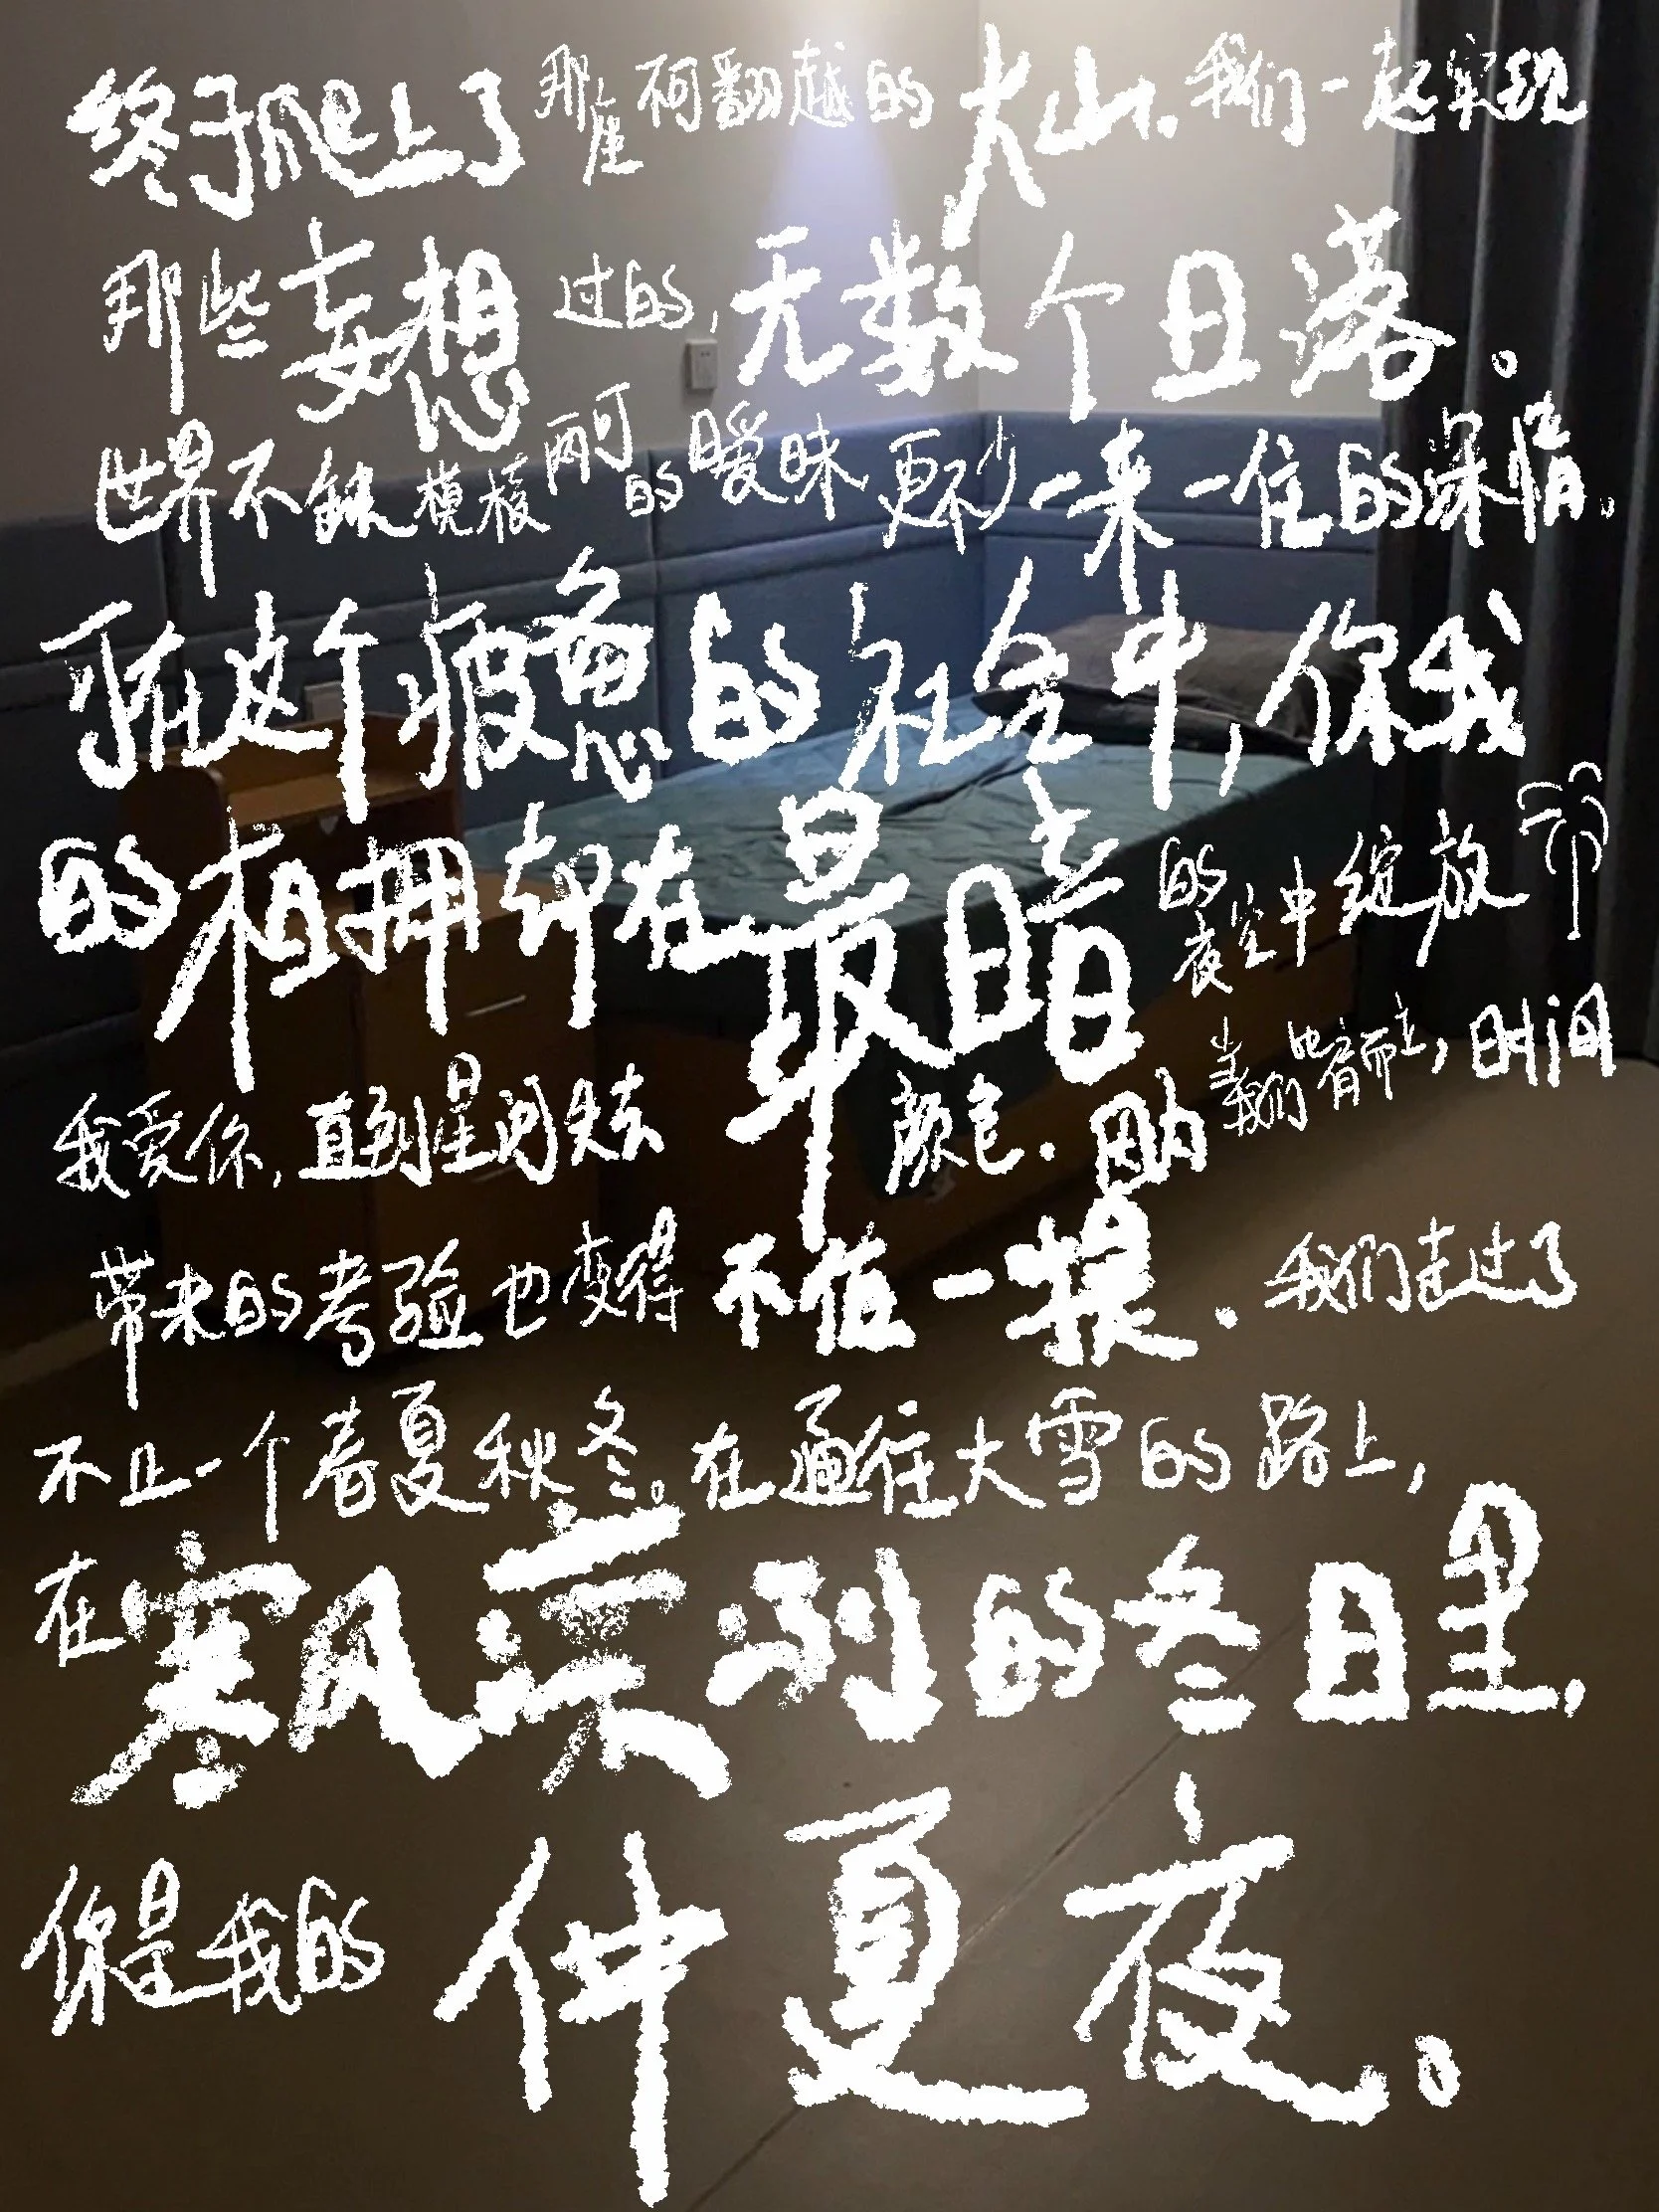 终于爬上了那座不可翻越的大山，我们一起实现
那些妄想过的，无数个日落。
世界不缺模棱两可的暧昧，更不少一来一往的深情。
可在这个疲惫的社会中，你我
的相拥却在最暗的夜空中绽放
我爱你，直到星河失去颜色。因为当我们比肩而立，时间
带来的考验也变得不值一提。我们走过了
不止一个春夏秋冬。在通往大雪的路上，
在寒风凛冽的冬日里，
你是我的仲夏夜。